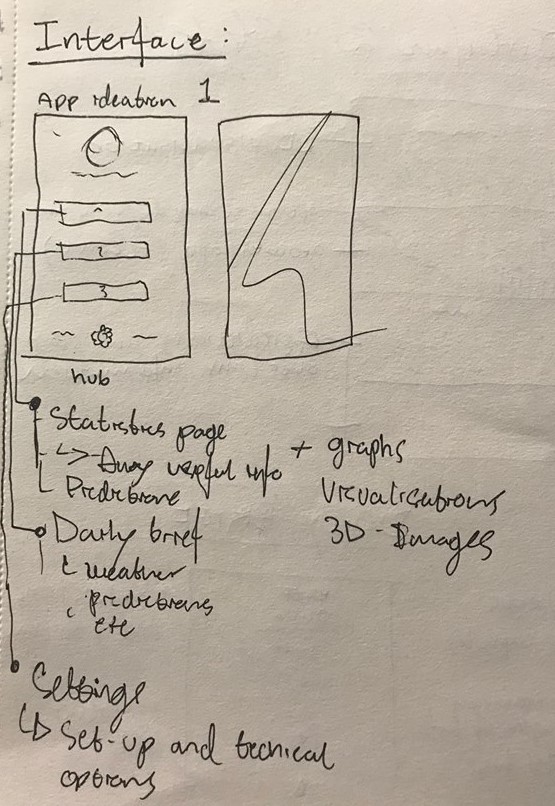 Interface :
App ideation 1
2
3
hub
Statistics page
Any useful info + graphs
Predictions
Visualisations
3D - Images
Daily brief
weather
predictions
etc
Settings
Set-up and tecnical
options